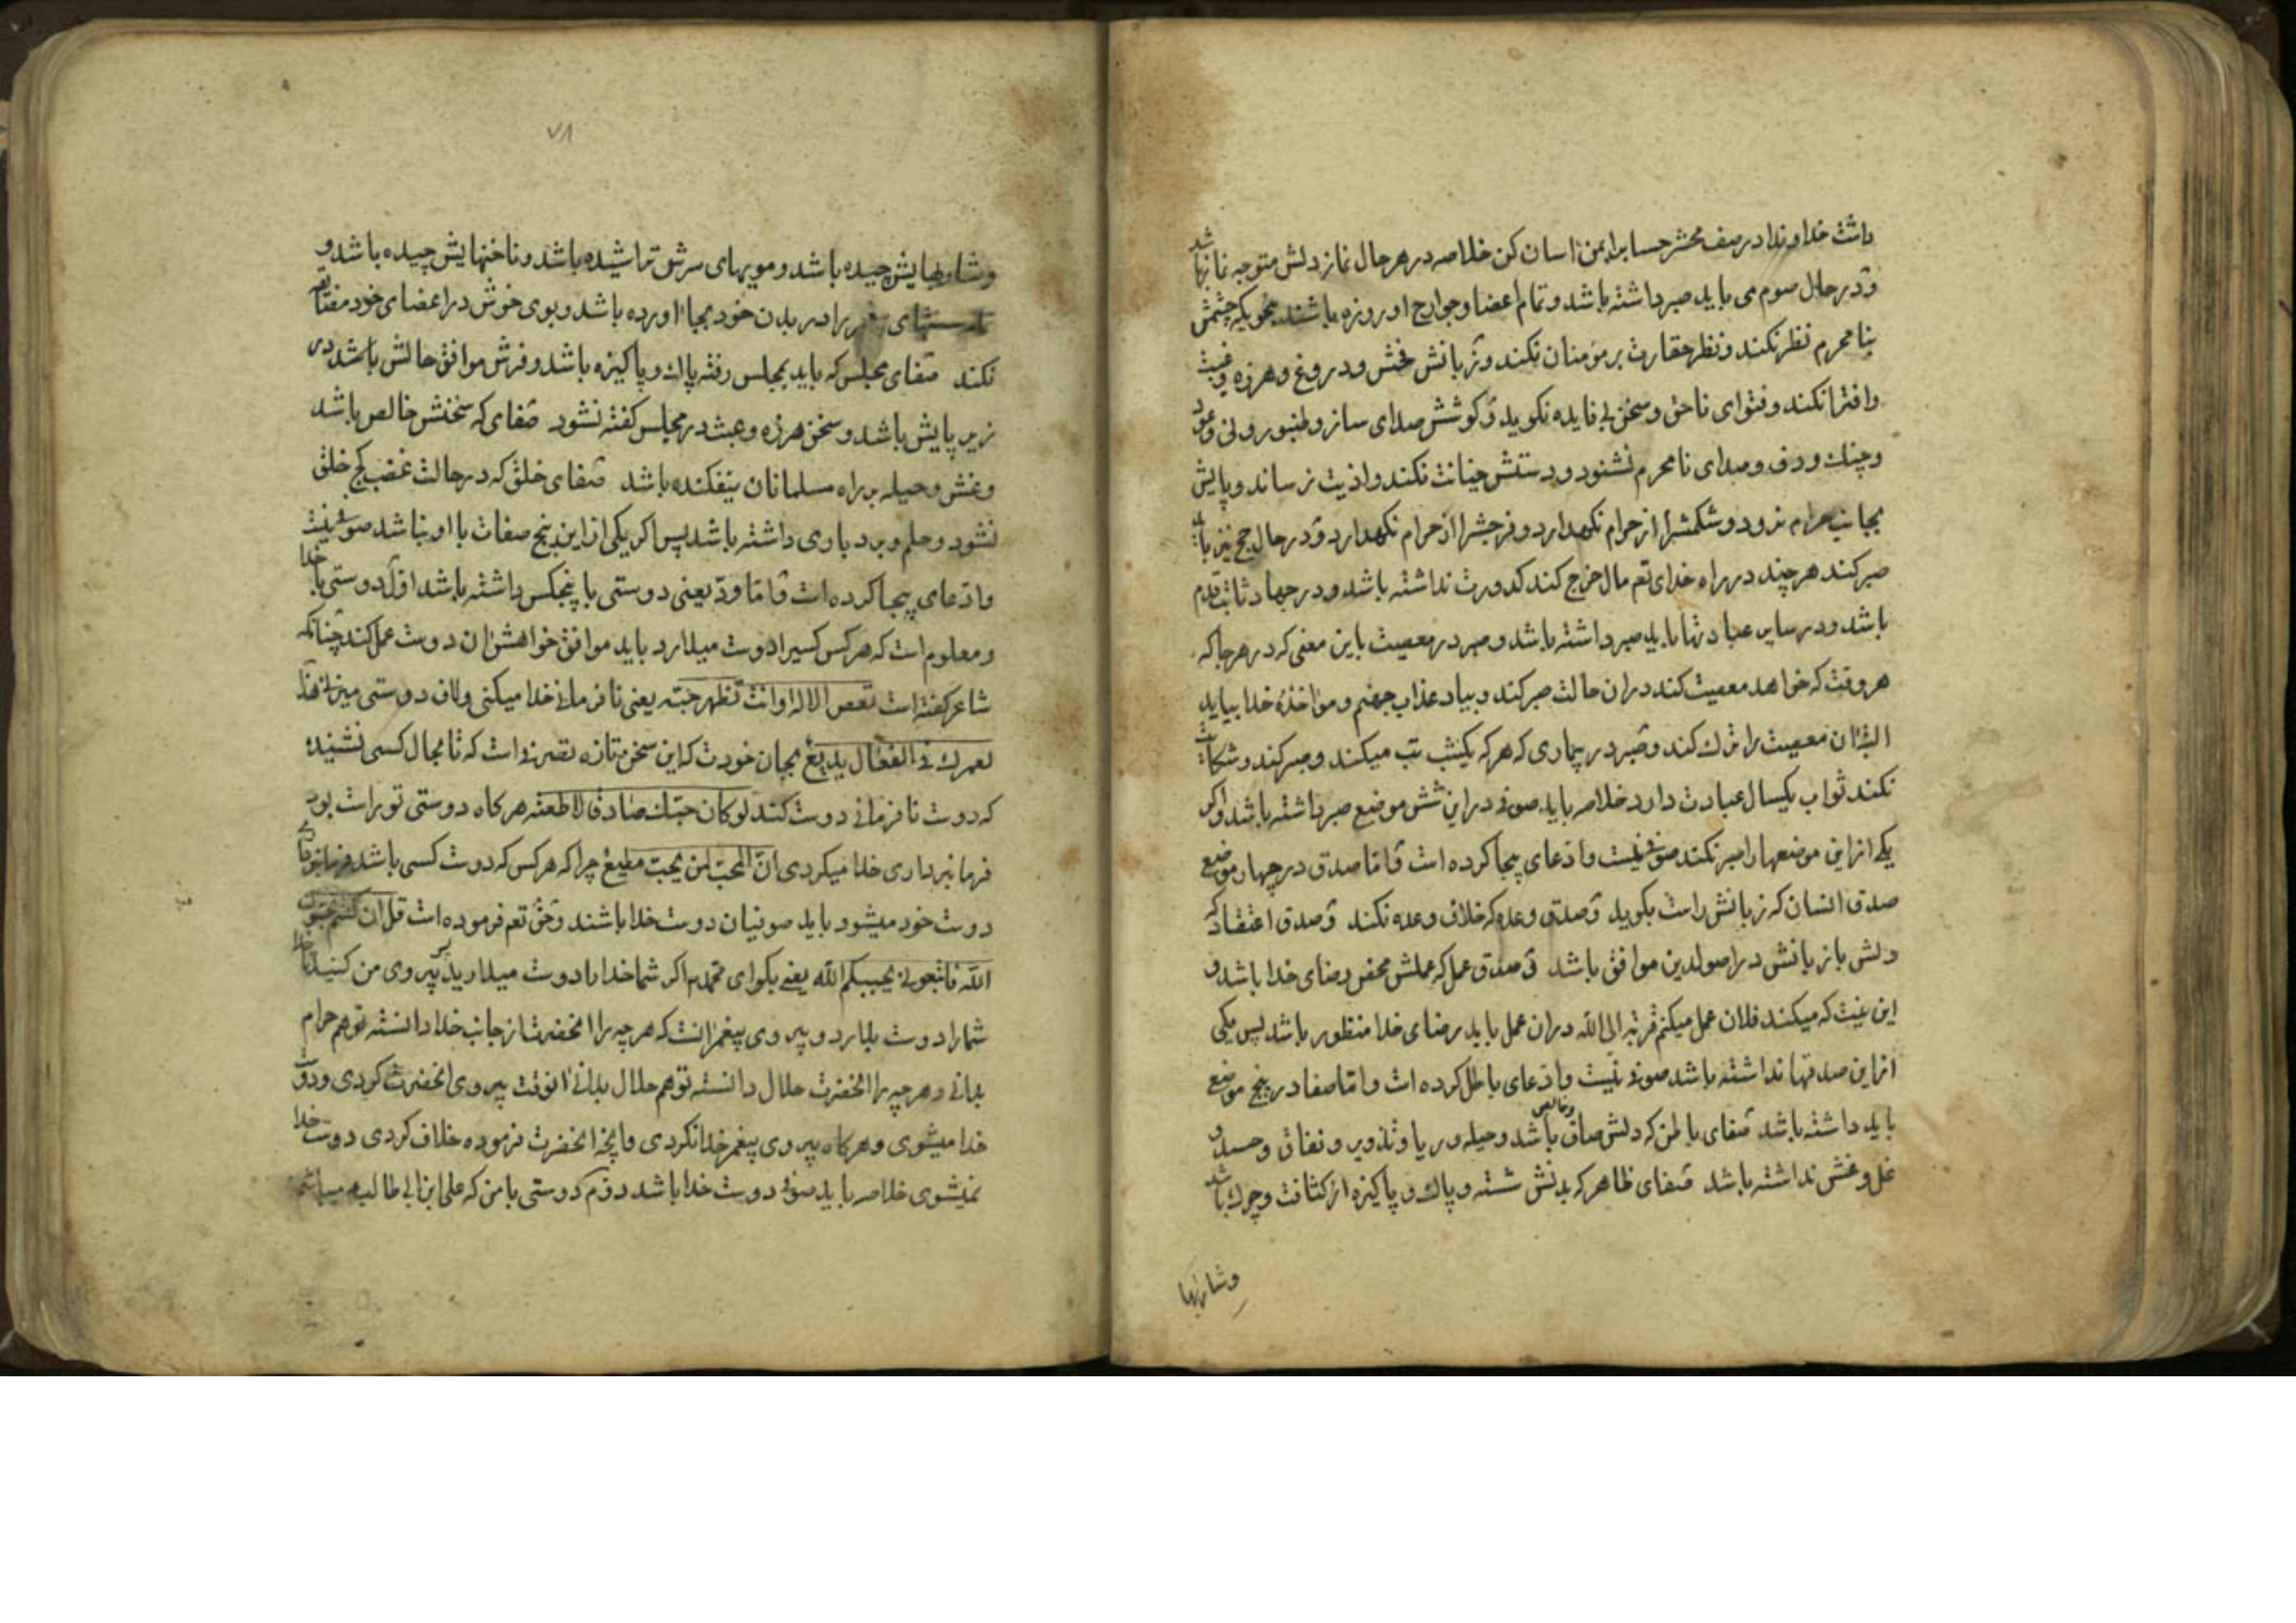 داشت خداوندا در صف محشر حساب را بمن اسان کن خلاصه در هر حال نماز دلش متوجه نماز باشد
و در حال صوم می باید صبر داشته باشد و تمام اعضا و جوارح او روزه باشند بنحویکه چشمش
بنامحرم نظر نکند و نظر حقارت بر مؤمنان نکند و زبانش فحش و دروغ و هرزه و غیبت
و افترا نکند و فتوای ناحق و سخن بی فایده نکوید و کوشش صدای ساز و طنبور و نی و عود
و چنک و دف و صدای نامحرم نشنود و دستش خیانت نکند و اذیت نرساند و پایش
بجانب حرام نرود و شکمشرا از حرام نکهدارد و فرجشرا از حرام نکهدارد و در حال حج نیز باید
صبر کند هر چند در راه خدای تعم مال خرج کند کدورت نداشته باشد و در جهاد ثابت قدم
باشد و در سایر عبادتها باید صبر داشته باشد و صبر در معصیت باین معنی که در هر جا که
هر وقت که خواهد معصیت کند در ان حالت صبر کند و بیاد عذاب جهنم و مواخذهٔ خدا بیاید
البته ان معصیت را ترك کند و صبر در بیماری که هر که یکشب تب میکند و صبر کند و شکایت
نکند ثواب یکسال عبادت دارد خلاصه باید صوفی در این شش موضع صبر داشته باشد و اکر
یکی از این موضعها را صبر نکند صوفی نیست و ادعای بیجا کرده است و اما صدق در چهار موضع
صدق لسان که زبانش راست بکوید و صدق وعده که خلاف وعده نکند و صدق اعتقاد که
دلش با زبانش در اصول دین موافق باشد و صدق عمل که عملش محض رضای خدا باشد و
این نیت که میکند فلان عمل میکنم قربة الی الله در ان عمل باید رضای خدا منظور باشد پس یکی
از این صدقها نداشته باشد صوفی نیست و ادعای باطل کرده است و اما صفا در پنج موضع
باید داشته باشد صفای باطن که دلش صاف و خالص باشد و حیله و ریا و تذویر و نفاق و حسد و
غل و غش نداشته باشد صفای ظاهر که بدنش شسته و پاك و پاکیزه از کثافت و چرك باشد
و شاربها
۷۸
و شاربهایش چیده باشد و مویهای سرش تراشیده باشد و ناخنهایش چیده باشد و
را در بدن خود بجا اورده باشد و بوی خوش در اعضای خود
نکند صفای مجلس که باید بمجلس رفته پاك و پاکیزه باشد و فرش موافق حالش باشد در
زیر پایش باشد و سخن هرزه و عبث در مجلس کفته نشود صفای که سخنش خالص باشد
و غش و حیله بر راه مسلمانان نیفکنده باشد صفای خلق که در حالت غضب کج خلق
نشود و حلم و بردباری داشته باشد پس اکر یکی از این پنج صفات با او نباشد صوفی نیست
و ادعای بیجا کرده است و اما ود یعنی دوستی با پنجکس داشته باشد اول دوستی با خدا
و معلوم است که هر کس کسیرا دوست میدارد باید موافق خواهش ان دوست عمل کند چنانکه
شاعر کفته است تعص الاله و انت تظهر حبه یعنی نافرمانی خدا میکنی و لاف دوستی میزنی هذا
لعمرك فی الفعال بدیع بجان خودت که این سخن تازه است که تا بحال کسی نشنیده
که دوست نافرمانی دوست کند لو کان حبك صادقا لاطعته هر کاه دوستی تو راست بود
فرمانبرداری خدا میکردی ان المحب لمن یحب مطیع چرا که هر کس که دوست کسی باشد
دوست خود میشود باید صوفیان دوست خدا باشند و حق تعم فرموده است قل ان کنتم تحبون
الله فاتبعونی یحببکم الله یعنی بکو ای محمد اکر شما خدا را دوست میدارید پس پیروی من کنید تا خدا
شما را دوست بدارد و پیروی پیغمر انست که هر چه را انحضرت از جانب خدا دانسته تو هم حرام
بدانی و هر چه را انحضرت حلال دانسته تو هم حلال بدانی انوقت پیروی انحضرت کردی و دوست
خدا میشوی و هر کاه پیروی پیغمر خدا نکردی و انچه انحضرت فرموده خلاف کردی دوست خدا
نمیشوی خلاصه باید صوفی دوست خدا باشد دوم دوستی با من که علی ابن ابی طالبم میباشم